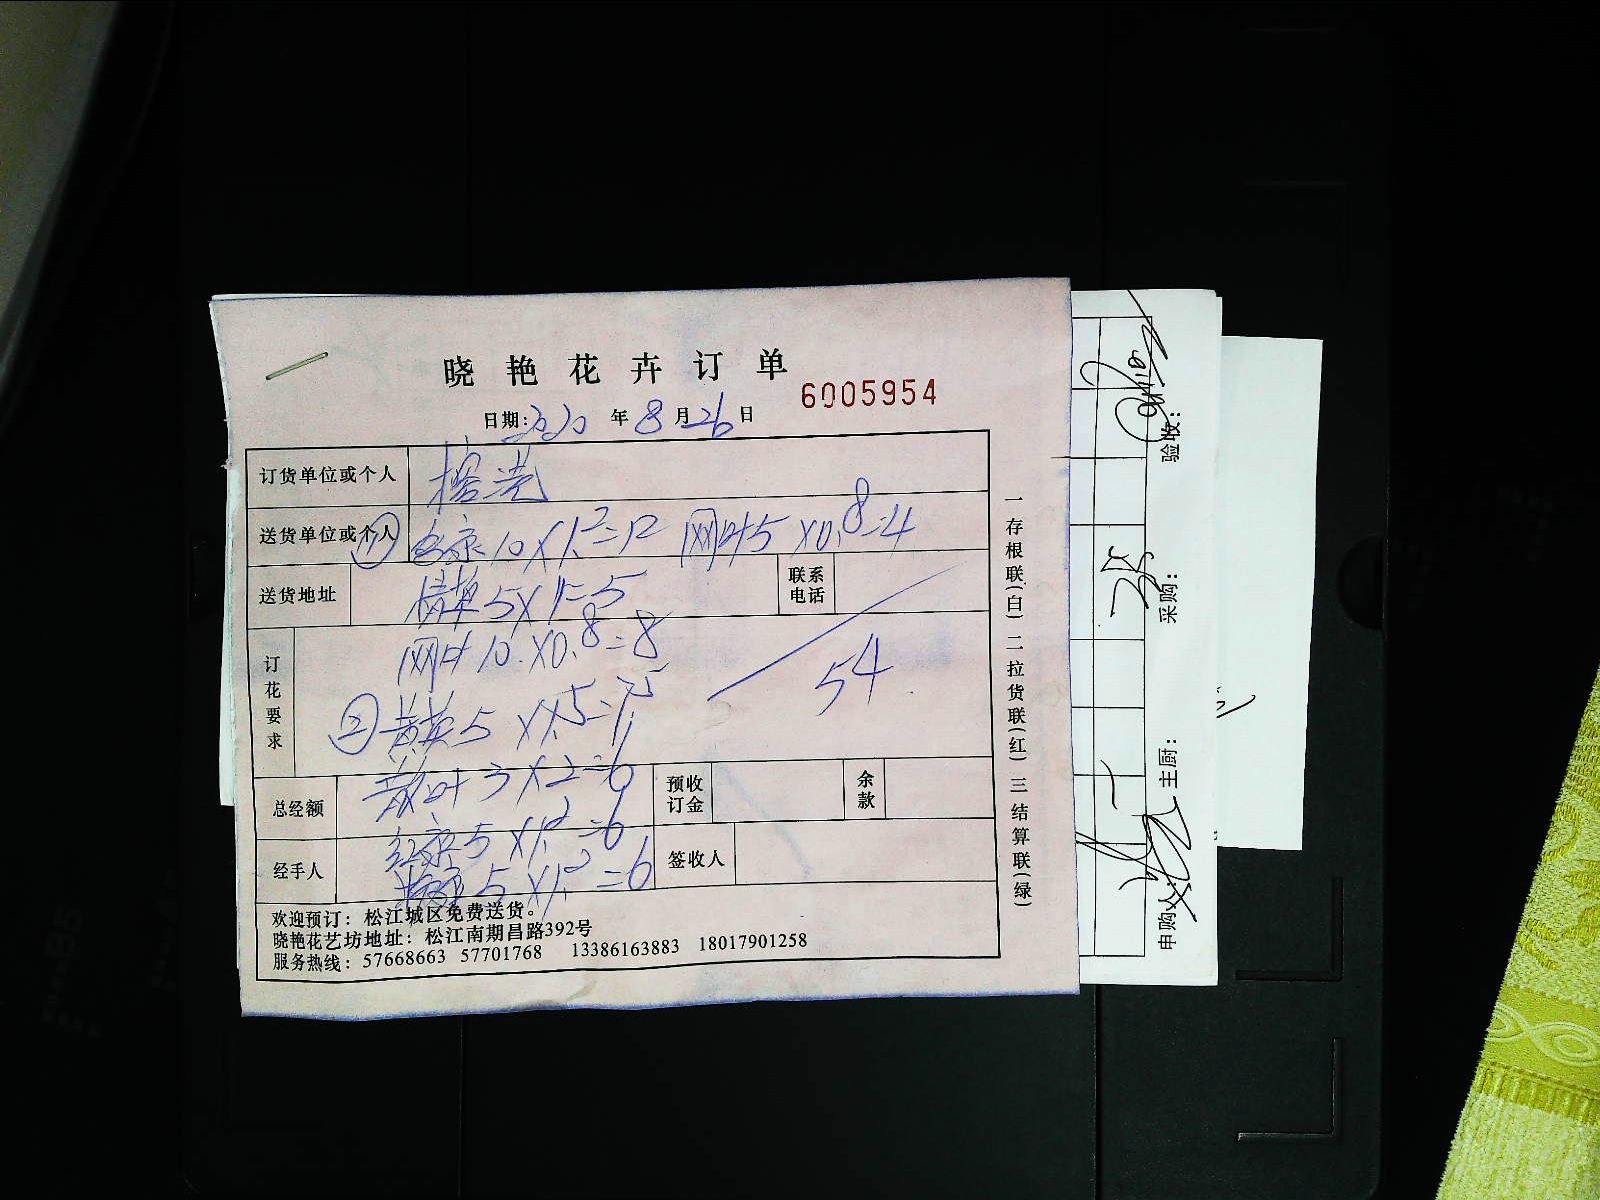 晓艳花卉订单
6005954
日期:2020年8月26日
订货单位或个人
送货单位或个人 ① 10×1.2=12 网叶5×0.8=4
送货地址 5×1=5 联系电话
网叶10×0.8=8
54
订花要求
② 黄英5×1.5=7.5
散叶3×2=6
总经额 预收订金 余款
红康5×1.2=6
经手人 5×1.2=6 签收人
欢迎预订:松江城区免费送货。
晓艳花艺坊地址:松江南期昌路392号
服务热线:57668663 57701768 13386163883 18017901258
一存根联(白)二拉货联(红)三结算联(绿)
申购人: 主厨: 采购: 验收: